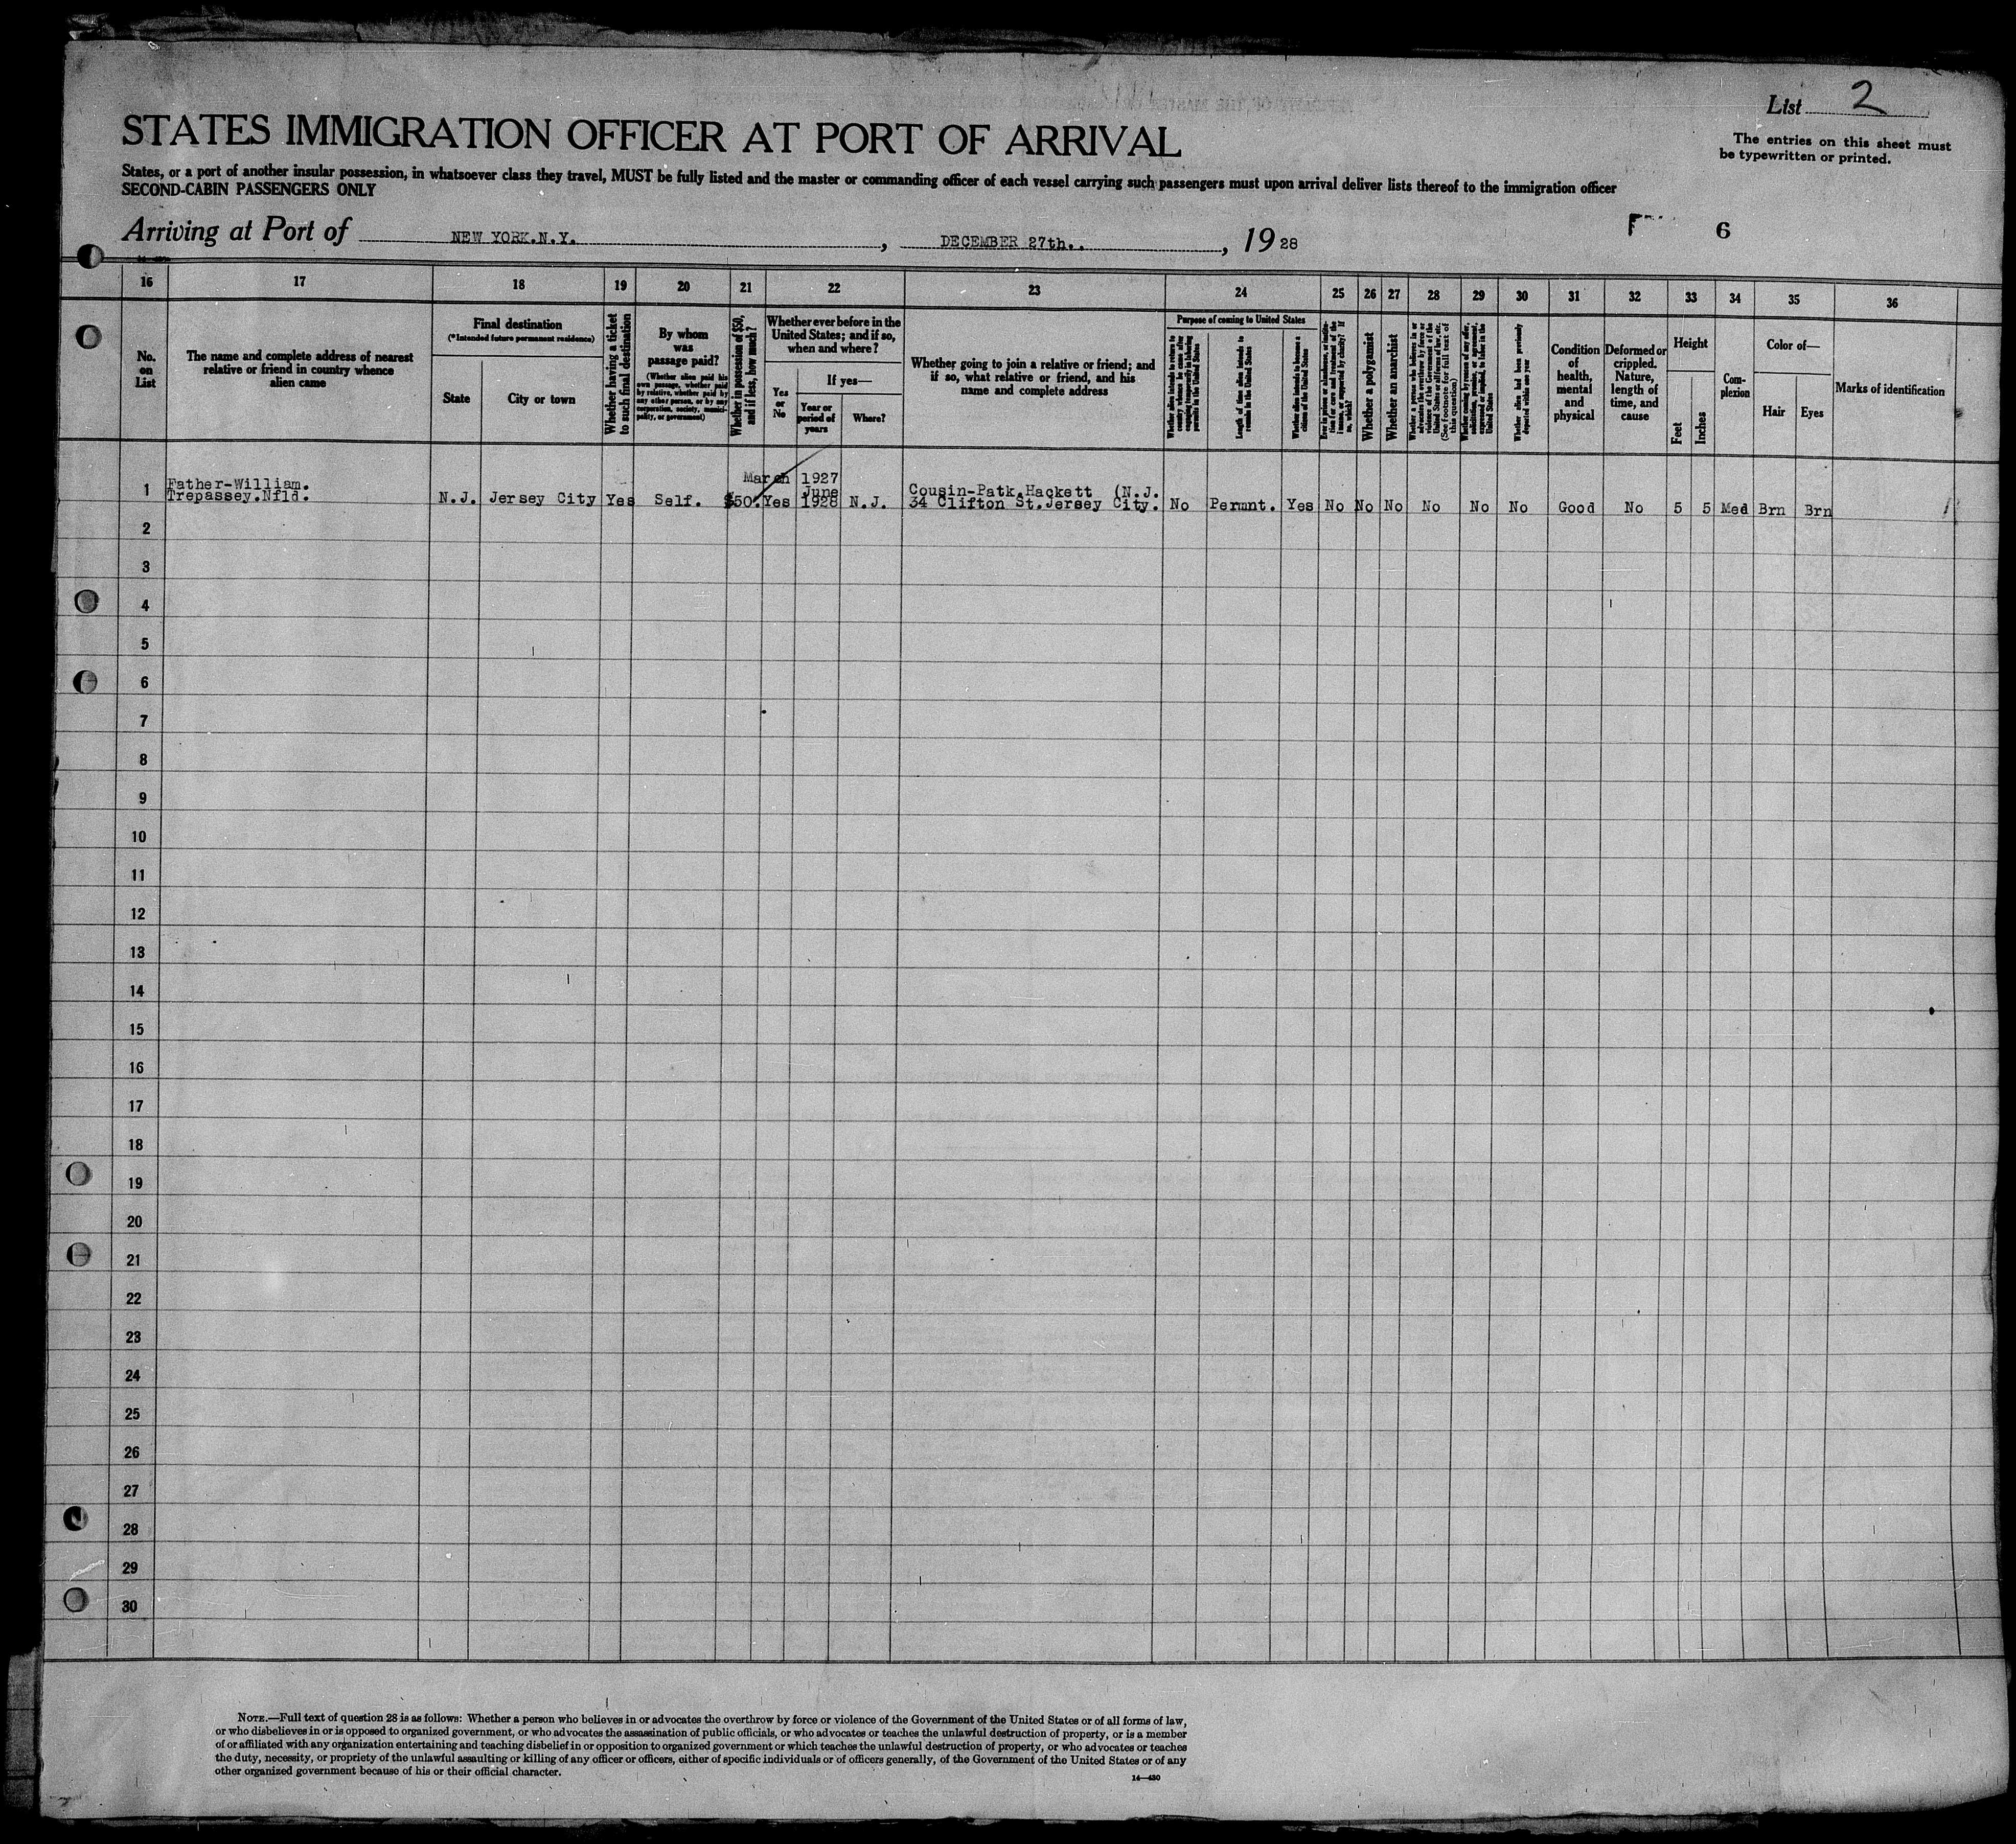 List 2
The entries on this sheet must
be typewritten or printed.
STATES IMMIGRATION OFFICER AT PORT OF ARRIVAL
States, or a port of another insular possession, in whatsoever class they travel, MUST be fully listed and the master or commanding officer of each vessel carrying such passengers must upon arrival deliver lists thereof to the immigration officer
SECOND-CABIN PASSENGERS ONLY
Arriving at Port of NEW YORK.N.Y. , DECEMBER 27th.. , 19 28
6
16 17 18 19 20 21 22 23 24 25 26 27 28 29 30 31 32 33 34 35 36
No.
on
List
The name and complete address of nearest
relative or friend in country whence
alien came
Final destination
(*Intended future permanent residence)
State
City or town
Whether having a ticket
to such final destination
By whom
was
passage paid?
(Whether alien paid his
own passage, whether paid
by relative, whether paid by
any other person, or by any
corporation, society, munici-
pality, or government)
Whether in possession of $50,
and if less, how much?
Whether ever before in the
United States; and if so,
when and where?
Yes
or
No
If yes—
Year or
period of
years
Where?
Whether going to join a relative or friend; and
if so, what relative or friend, and his
name and complete address
Purpose of coming to United States
Whether alien intends to return to
country whence he came after
engaging temporarily in laboring
pursuits in the United States
Length of time alien intends to
remain in the United States
Whether alien intends to become a
citizen of the United States
Ever in prison or almshouse, or institu-
tion for care and treatment of the
insane, or supported by charity? If
so, which?
Whether a polygamist
Whether an anarchist
Whether a person who believes in or
advocates the overthrow by force or
violence of the Government of the
United States or all forms of law, etc.
(See footnote for full text of
this question)
Whether coming by reason of any offer,
solicitation, promise, or agreement,
expressed or implied, to labor in the
United States
Whether alien had been previously
deported within one year
Condition
of
health,
mental
and
physical
Deformed or
crippled.
Nature,
length of
time, and
cause
Height
Feet
Inches
Com-
plexion
Color of—
Hair
Eyes
Marks of identification
March 1927
1 Father-William. June Cousin-Patk.Hackett (N.J.
Trepassey.Nfld. N.J. Jersey City Yes Self. $50. Yes 1928 N.J. 34 Clifton St.Jersey City. No Permnt. Yes No No No No No No Good No 5 5 Med Brn Brn
2
3
4
5
6
7
8
9
10
11
12
13
14
15
16
17
18
19
20
21
22
23
24
25
26
27
28
29
30
NOTE.—Full text of question 28 is as follows: Whether a person who believes in or advocates the overthrow by force or violence of the Government of the United States or of all forms of law,
or who disbelieves in or is opposed to organized government, or who advocates the assassination of public officials, or who advocates or teaches the unlawful destruction of property, or is a member
of or affiliated with any organization entertaining and teaching disbelief in or opposition to organized government or which teaches the unlawful destruction of property, or who advocates or teaches
the duty, necessity, or propriety of the unlawful assaulting or killing of any officer or officers, either of specific individuals or of officers generally, of the Government of the United States or of any
other organized government because of his or their official character.
14—430